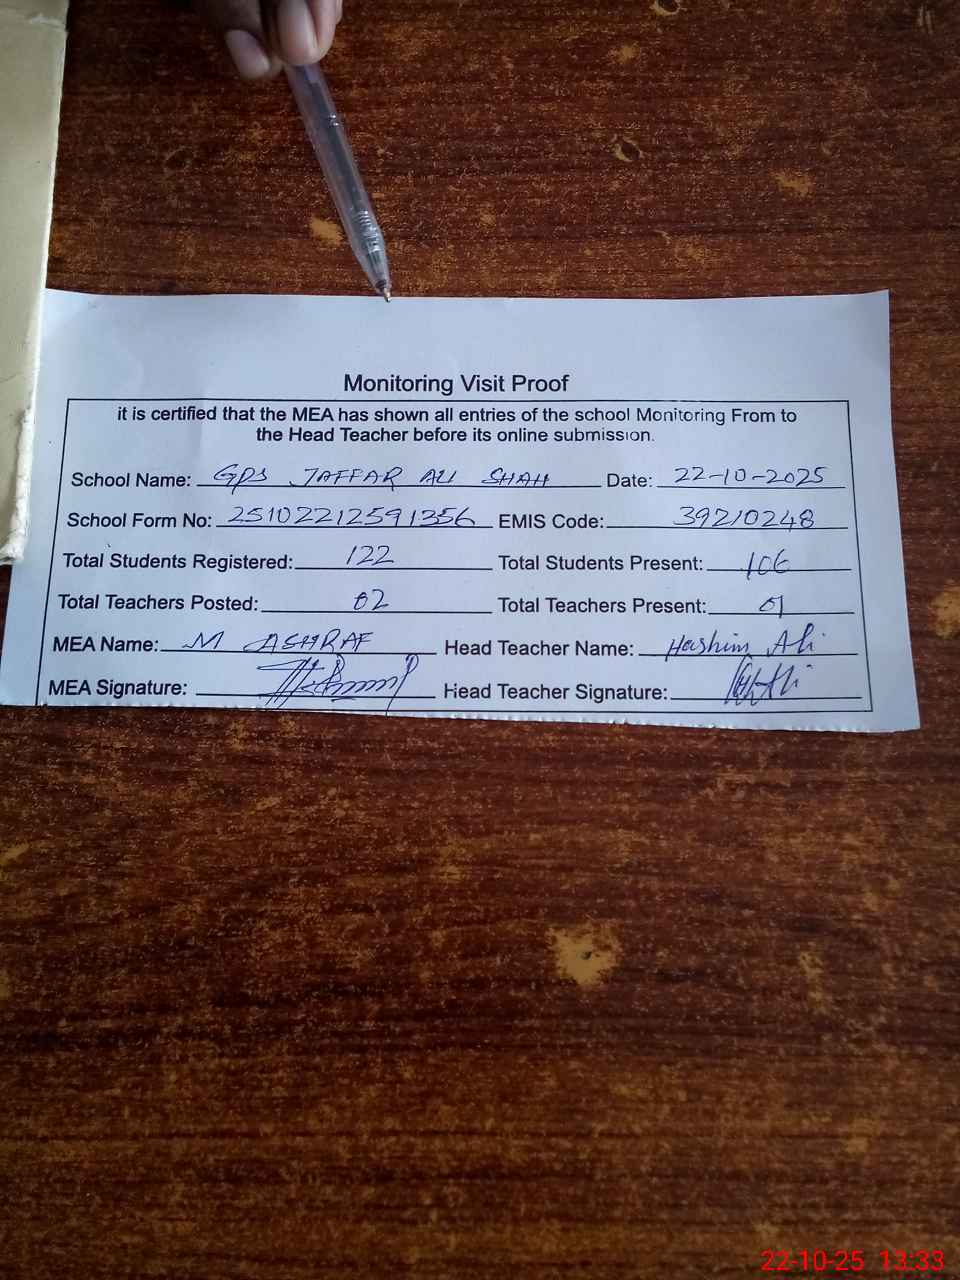 Monitoring Visit Proof
it is certified that the MEA has shown all entries of the school Monitoring From to
the Head Teacher before its online submission.
School Name: GPS JAFFAR ALI SHAH Date: 22-10-2025
School Form No: 25102212591356 EMIS Code: 39210248
Total Students Registered: 122 Total Students Present: 106
Total Teachers Posted: 02 Total Teachers Present: 01
MEA Name: M ASHRAF Head Teacher Name: Hashim Ali
MEA Signature: Head Teacher Signature:
22-10-25 13:33